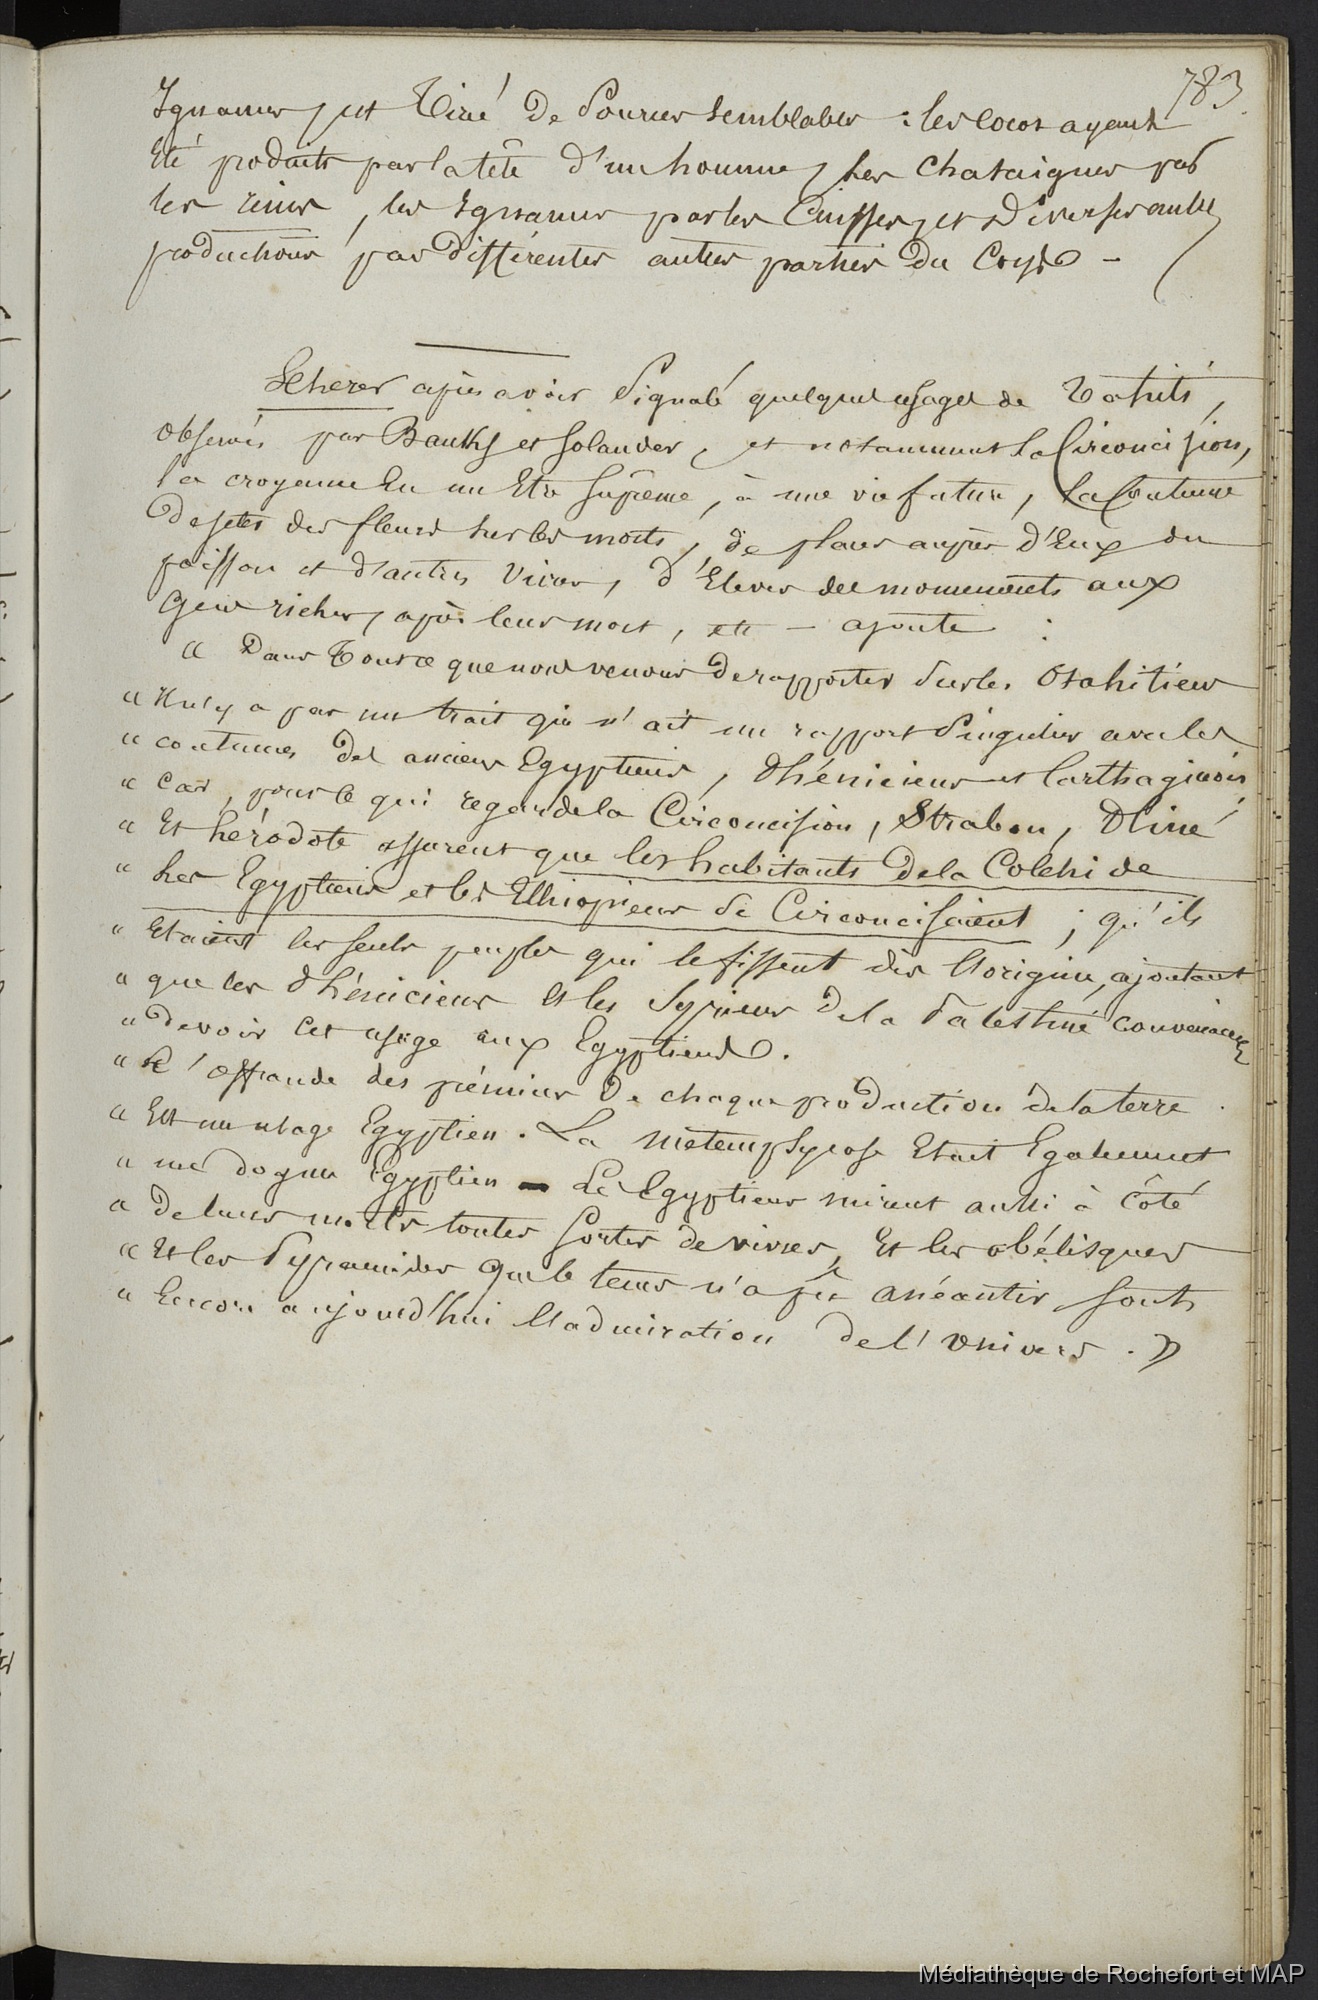 783
Ignames, est tiré de sources semblables : les cocos ayant
été produits par la tête d'un homme, les chataignes par
les reins, les Ignames par les Cuisses, et diverses autres
productions par différentes autres parties du Corps –
Scherer après avoir signalé quelques usages de Tahiti,
observés par Banks et Solander, et notamment la Circoncision,
la croyance en un Etre suprême, à une vie future, la Coutume
de jeter des fleurs sur les morts, de placer auprès d'Eux du
poisson et d'autres vivres, d'Elever des monuments aux
Gens riches, après leur mort, etc – ajoute :
" Dans tout ce que nous venons de rapporter sur les Otahitiens
" Il n'y a pas un trait qui n'ait un rapport singulier avec les
" coutumes des anciens Egyptiens, Phéniciens et Carthaginois
" Car, pour ce qui regarde la Circoncision, Strabon, Pline
" Et hérodote assurent que les habitants de la Colchide
" les Egyptiens et les Ethiopiens se Circoncisaient ; qu'ils
" Etaient les seuls peuples qui le fissent dès l'origine, ajoutant
" que les Phéniciens Et les Syriens de la Palestine convenaient
" devoir cet usage aux Egyptiens.
" L'offrande des prémices de chaque production de la terre
" Est un usage Egyptien. La métempsycose Etait Egalement
" un dogme Egyptien – Les Egyptiens mirent aussi à côté
" de leurs morts toutes sortes de vivres, Et les obélisques
" Et les Pyramides que le tems n'a pu anéantir sont
" Encore aujourd'hui l'admiration de l'Univers. "
Médiathèque de Rochefort et MAP